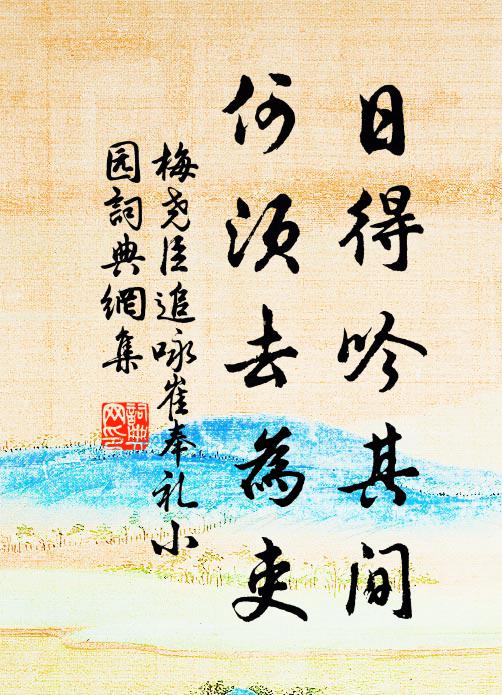 日得吟其间
何须去為吏
梅尧臣追咏崔奉礼小
园詞典網集
詞典网印